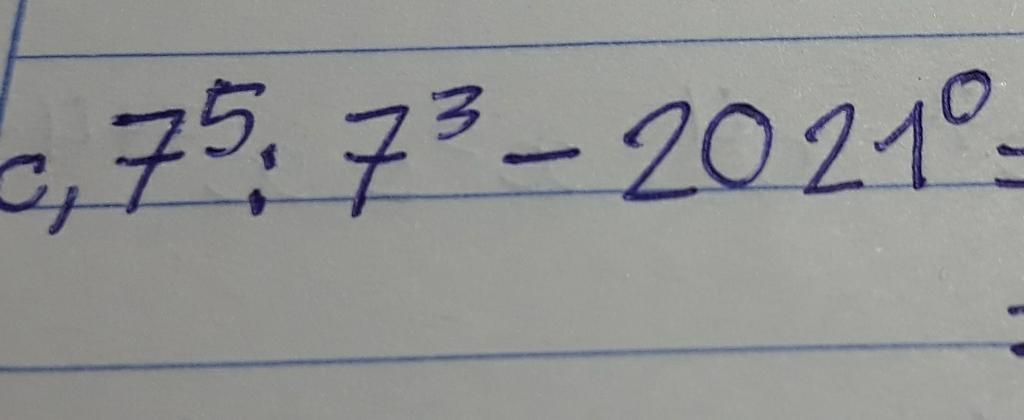 c, 7⁵ : 7³ - 2021⁰ =
=